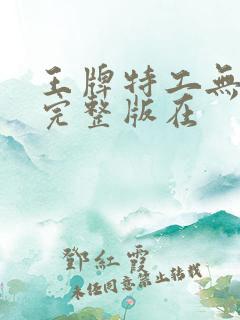 王牌特工無
完整版在
鄧紅霞
未经同意禁止转载